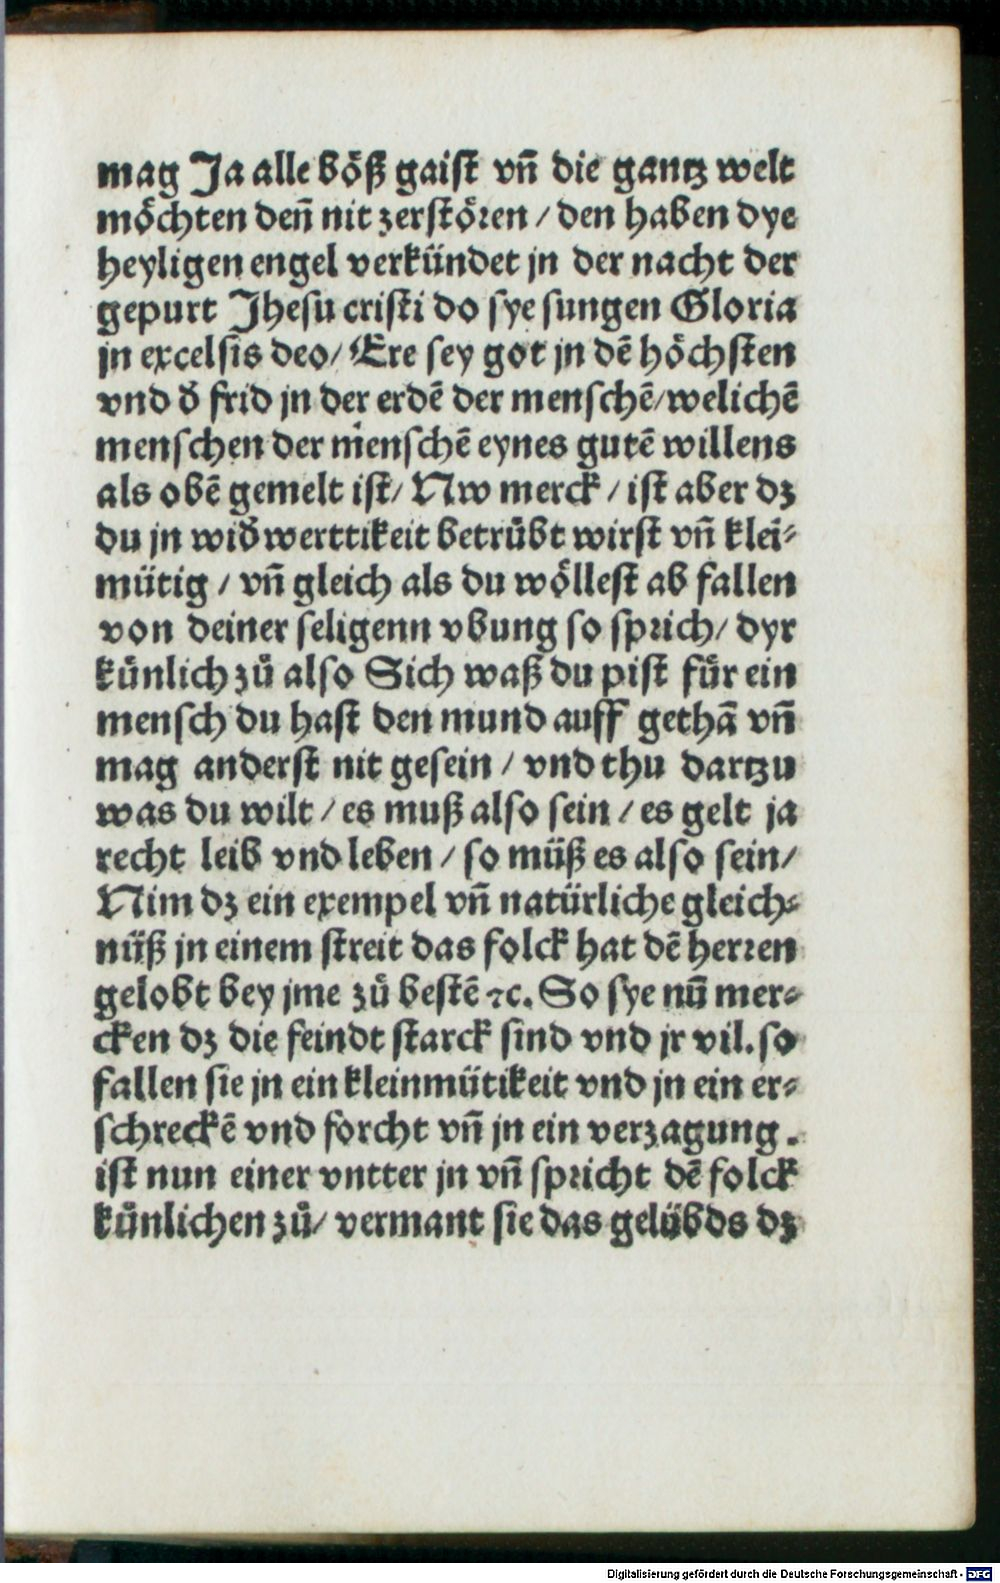 mag Ja alle böß gaist vñ die gantz welt
möchten deñ nit zerstören / den haben dye
heyligen engel verkündet jn der nacht der
gepurt Jhesu cristi do sye sungen Gloria
jn excelsis deo/ Ere sey got jn dē höchsten
vnd d̄ frid jn der erdē der menschē/welichē
menschen der menschē eynes gutē willens
als obē gemelt ist/ Nw merck / ist aber dz
du jn wid̄werttikeit betrübt wirst vñ klei-
mütig / vñ gleich als du wöllest ab fallen
von deiner seligenn vbung so sprich/ dyr
kůnlich zů also Sich waß du pist für ein
mensch du hast den mund auff gethā vñ
mag anderst nit gesein / vnd thu dartzu
was du wilt / es muß also sein / es gelt ja
recht leib vnd leben / so müß es also sein/
Nim dz ein exempel vñ natürliche gleich-
nüß jn einem streit das folck hat dē herren
gelobt bey jme zů bestē ⁊c. So sye nū mer-
cken dz die feindt starck sind vnd jr vil. so
fallen sie jn ein kleinmütikeit vnd jn ein er-
schreckē vnd forcht vñ jn ein verzagung .
ist nun einer vntter jn vñ spricht dē folck
kůnlichen zů/ vermant sie das gelübds dz
Digitalisierung gefördert durch die Deutsche Forschungsgemeinschaft - DFG